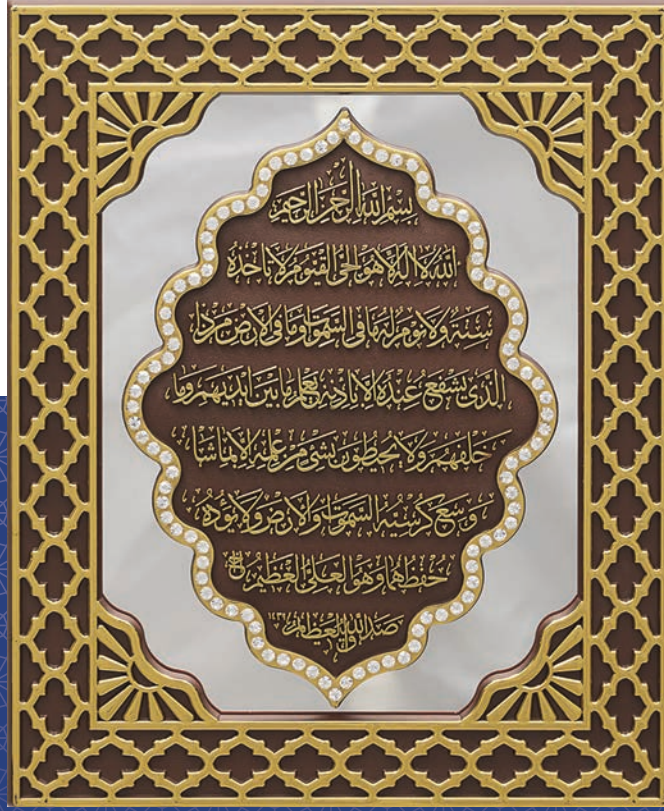 بسم الله الرحمن الرحيم
الله لا اله الا هو الحى القيوم لا تاخذه
سنة ولا نوم له ما فى السموت وما فى الارض من ذا
الذى يشفع عنده الا باذنه يعلم ما بين ايديهم وما
خلفهم ولا يحيطون بشئ من علمه الا بما شا
وسع كرسيه السموت والارض ولا يؤده
حفظهما وهو العلى العظيم
صدق الله العظيم